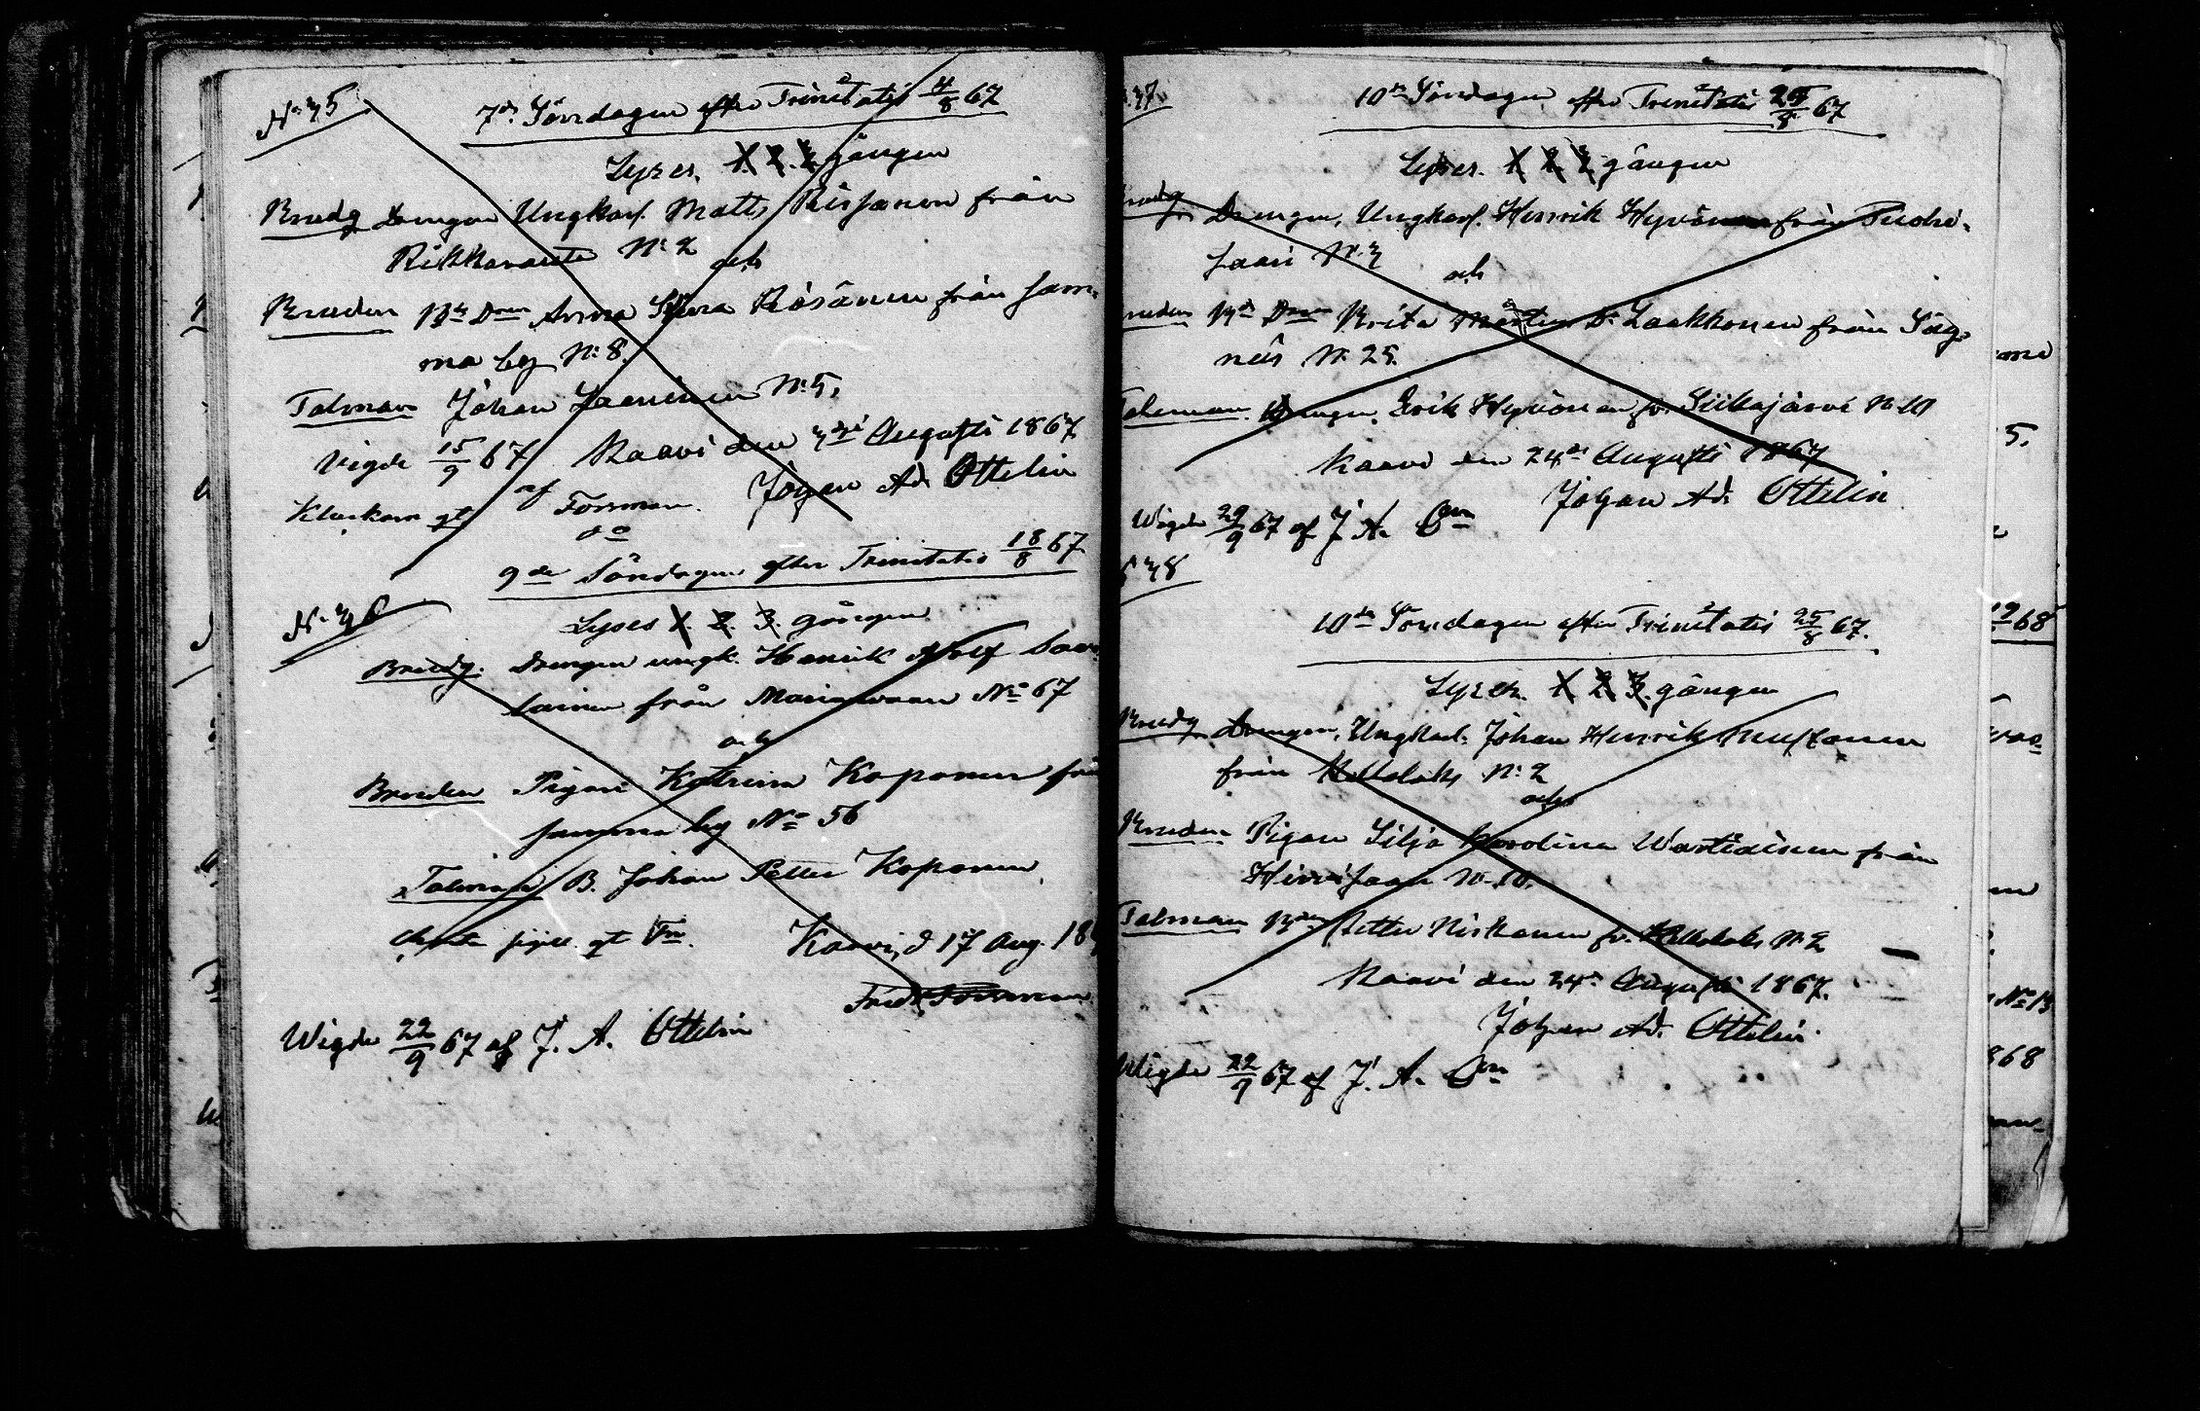 No 35
7de Söndagen efter Trinitatis 4/8 67
Lyses. 1. 2. 3 gången
Brudg Drengen Ungkarl. Matts från
Rikkaranta No 2
och
Bruden Bd Dren Anna Räsänen från sam-
ma by No 8.
Talman Johan No 5,
Vigde 15/9 67 Kaavi den 3die Augusti 1867
af Forsman. Johan Ad. Ottelin
Klockaren gt
9de Söndagen efter Trinitatis 18/8 67.
No 36
Lyses 1. 2. 3. gången
Brudg. Drengen ungk. Henrik Adolf Savo-
lainen från Mariavaara No 67
och
Bruden Pigan Katrina Koponen från
samma by No 56
Talman B. Johan Petter Koponen.
gt Fn. Kaavi, d 17 Aug. 18
Fredr Forsman
Wigde 22/9 67 af J. A. Ottelin
37.
10de Söndagen efter Trinitatis 25/8 67
Lyses. 1 2 3 gången
Brudg Drengen, Ungkarl. Henrik Hyvönen från
saari No 3
och
Bruden Bd Dren Brita Mårtens Dr Laakkonen från Säg-
näs No 25.
Talman. Drengen, Erik Hyvönen fr. Siikajärvi No 10
Kaavi den 24de Augusti 1867
Johan Ad. Ottelin
Wigde 29/9 67 af J. A. Oon
38
10de Söndagen efter Trinitatis 25/8 67.
Lyses. 1 2 3. gången
Brudg Drengen, Ungkarl. Johan Henrik Mustonen
från No 2
och
Bruden Pigan Silja Karolina Wartiainen från
Hirvisaari No 10.
Talman Petter Niskanen fr. No 2
Kaavi den 24de Augusti 1867.
Johan Ad. Ottelin.
Wigde 22/9 67 af J. A. Oon